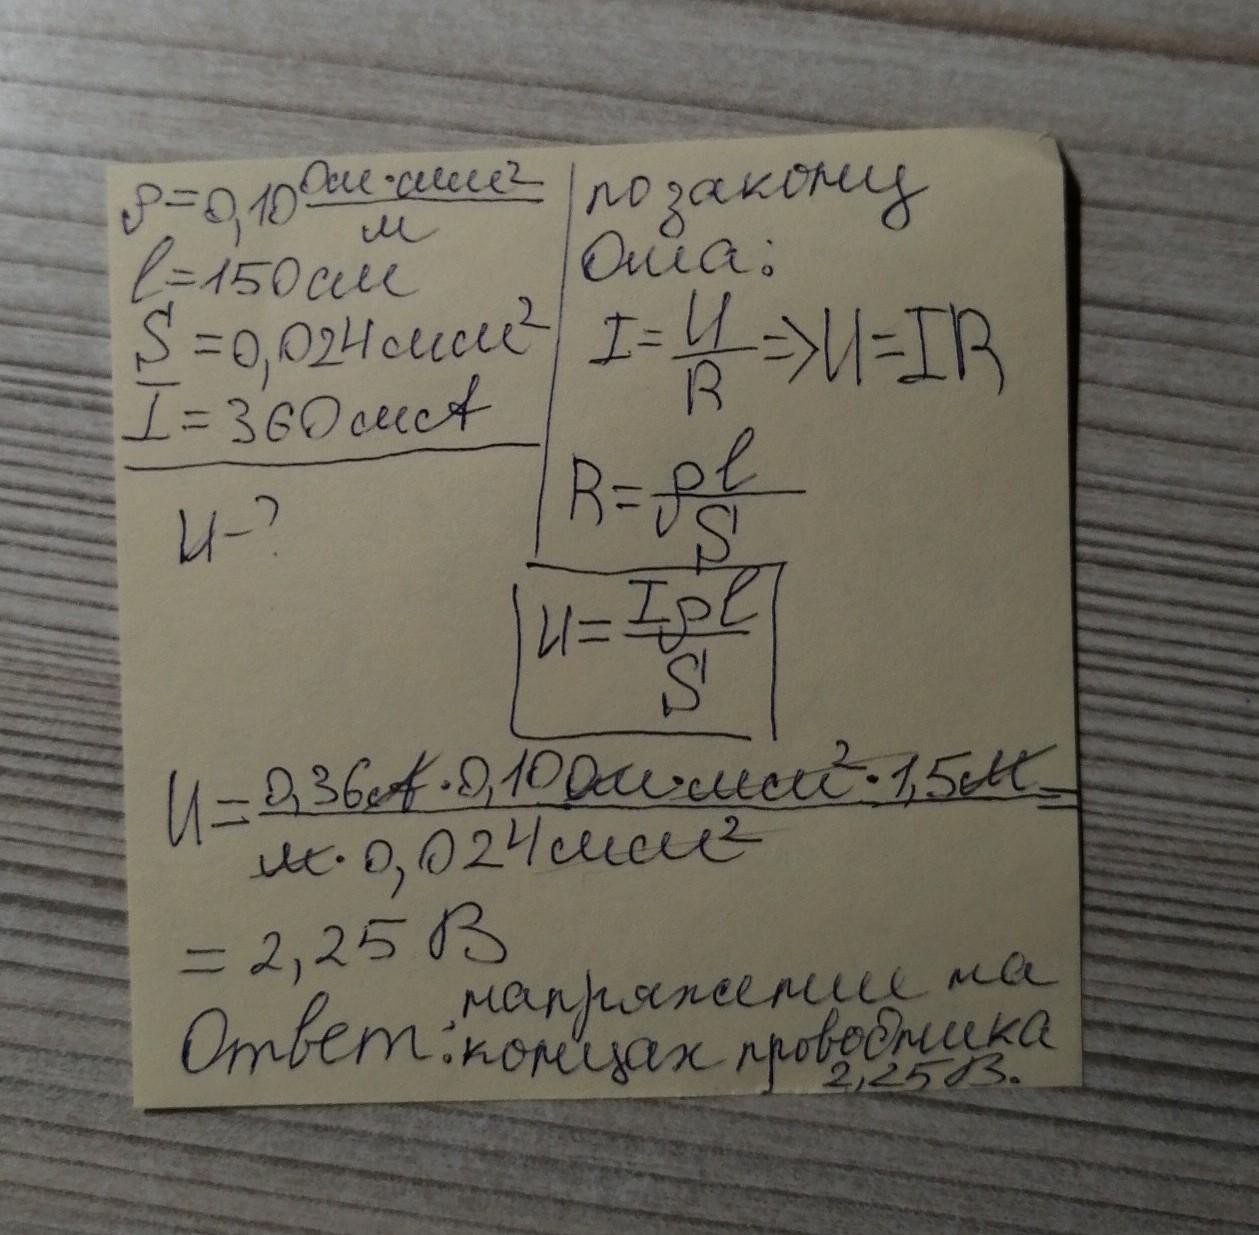 ρ=0,10 Ом·мм²/м
l=150см
S=0,024мм²
I=360мА
U-?
по закону
Ома:
I=U/R=>U=IR
R=ρl/S
U=Iρl/S
U=0,36А·0,10Ом·мм²·1,5м/м·0,024мм²=
=2,25В
Ответ: напряжение на
концах проводника
2,25В.